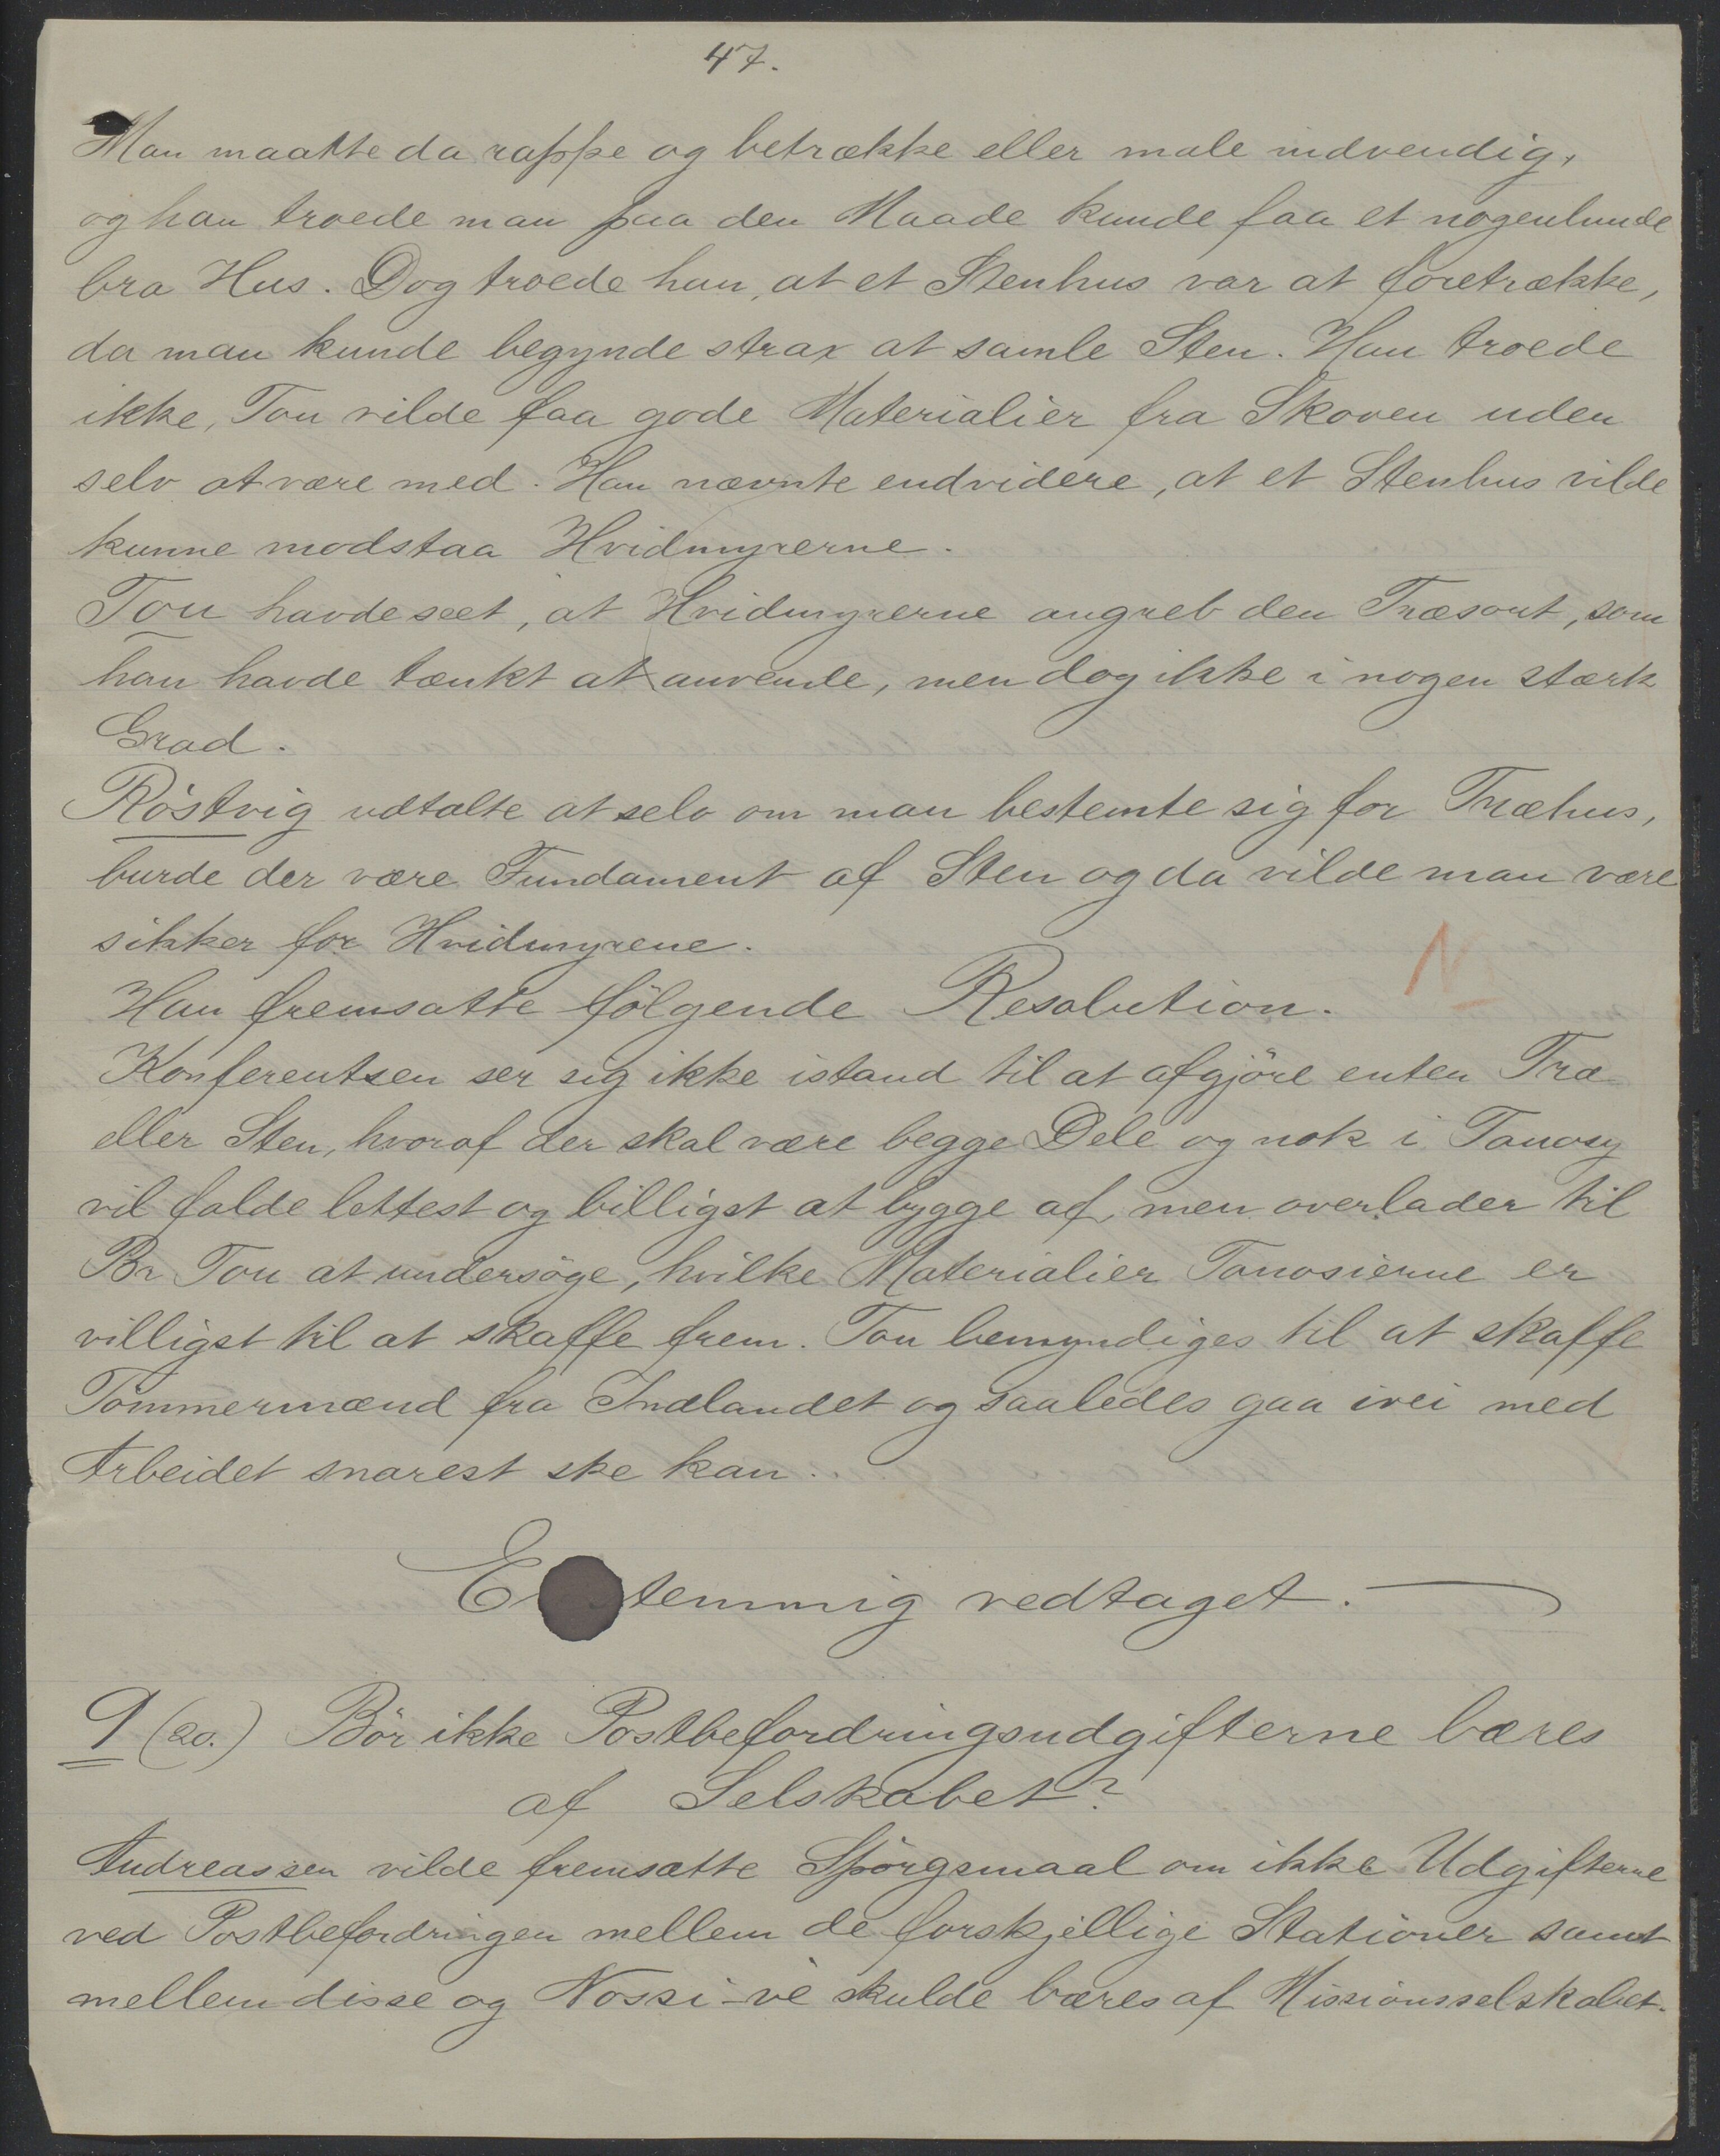 47.
Man maatte da rappe og betrække eller male indvendig,
og han troede man paa den Maade kunde faa et nogenlunde
bra Hus. Dog troede han, at et Stenhus var at foretrække,
da man kunde begynde strax at samle Sten. Han troede
ikke, Tou vilde faa gode Materialier fra Skoven uden
selv at være med. Han nævnte endvidere, at et Stenhus vilde
kunne modstaa Hvidmyrerne.
Tou havde seet, at Hvidmyrerne angreb den Træsort, som
han havde tænkt at anvende, men dog ikke i nogen stærk
Grad.
Röstvig udtalte at selv om man bestemte sig for Træhus,
burde der være Fundament af Sten og da vilde man være
sikker for Hvidmyrene.
Han fremsatte fölgende Resolution.
Konferentsen ser sig ikke istand til at afgjöre enten Træ
eller Sten, hvoraf der skal være begge Dele og nok i Tanosy
vil falde lettest og billigst at bygge af, men overlader til
Br Tou at undersöge, hvilke Materialier Tanosierne er
villigst til at skaffe frem. Tou bemyndiges til at skaffe
Tömmermænd fra Indlandet og saaledes gaa ivei med
Arbeidet snarest ske kan.
E temmig vedtaget.
9 (20.) Bör ikke Postbefordringsudgifterne bæres
af Selskabet?
Andreassen vilde fremsætte Spörgsmaal om ikke Udgifterne
ved Postbefordringen mellem de forskjellige Stationer samt
mellem disse og Nossi-vé skulde bæres af Missionsselskabet.